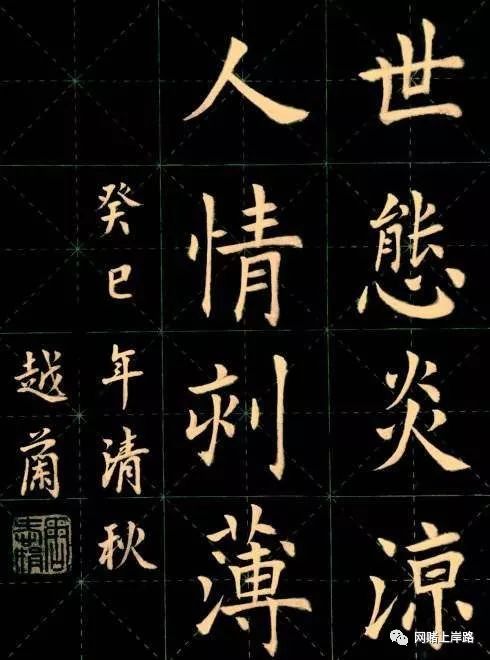 世態炎涼
人情刺薄
癸巳年清秋
越
网赌上岸路